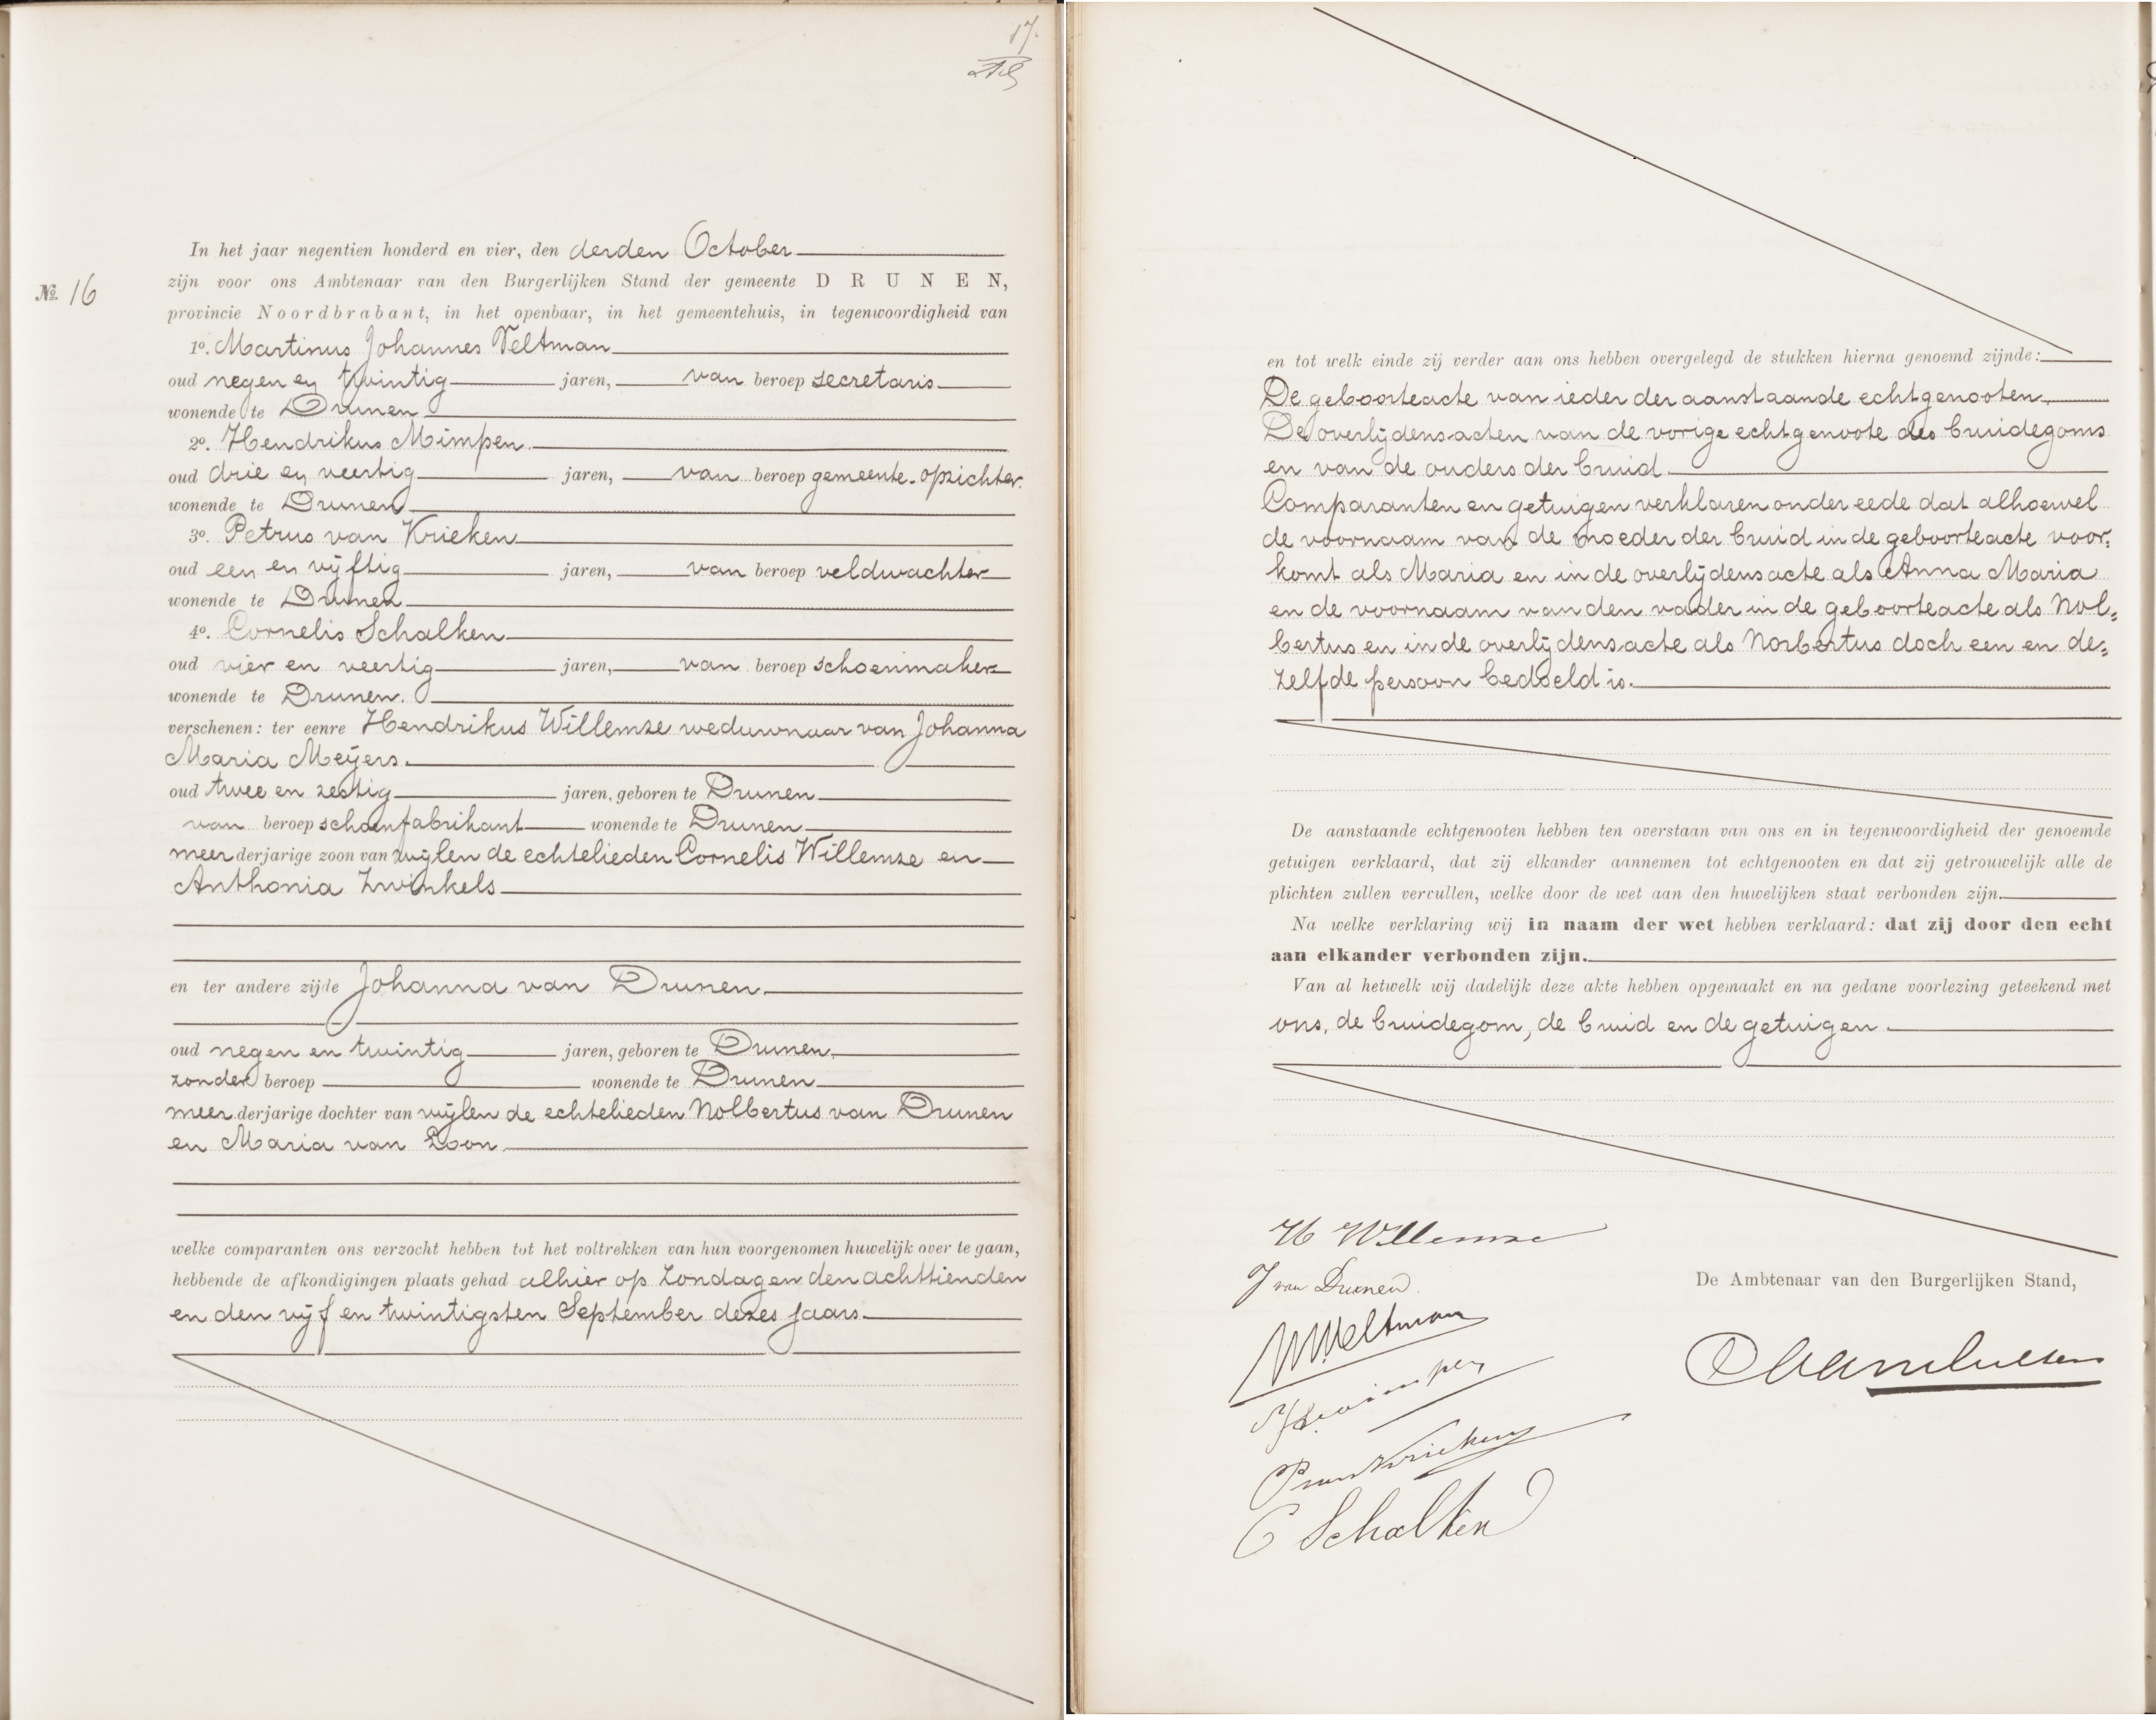 17.
No. 16
In het jaar negentien honderd en vier, den derden October
zijn voor ons Ambtenaar van den Burgerlijken Stand der gemeente DRUNEN,
provincie Noordbrabant, in het openbaar, in het gemeentehuis, in tegenwoordigheid van
1o. Martinus Johannes Veltman
oud negen en twintig jaren, van beroep secretaris
wonende te Drunen
2o. Hendrikus Mimpen
oud drie en veertig jaren, van beroep gemeente-opzichter.
wonende te Drunen
3o. Petrus van Krieken
oud een en vijftig jaren, van beroep veldwachter
wonende te Drunen
4o. Cornelis Schalken
oud vier en veertig jaren, van beroep schoenmaker
wonende te Drunen.
verschenen: ter eenre Hendrikus Willemse weduwnaar van Johanna
Maria Meijers.
oud twee en zestig jaren, geboren te Drunen
van beroep schoenfabrikant wonende te Drunen
meerderjarige zoon van wijlen de echtelieden Cornelis Willemse en
Anthonia Zwinkels
en ter andere zijde Johanna van Drunen
oud negen en twintig jaren, geboren te Drunen.
zonder beroep wonende te Drunen
meerderjarige dochter van wijlen de echtelieden Nolbertus van Drunen
en Maria van Loon
welke comparanten ons verzocht hebben tot het voltrekken van hun voorgenomen huwelijk over te gaan,
hebbende de afkondigingen plaats gehad alhier op Zondagen den achttienden
en den vijf en twintigsten September dezes jaars.
en tot welk einde zij verder aan ons hebben overgelegd de stukken hierna genoemd zijnde:
De geboorteacte van ieder der aanstaande echtgenooten.
De overlijdensacten van de vorige echtgenoote des bruidegoms
en van de ouders der bruid.
Comparanten en getuigen verklaren onder eede dat alhoewel
de voornaam van de moeder der bruid in de geboorteacte voor=
komt als Maria en in de overlijdensacte als Anna Maria
en de voornaam van den vader in de geboorteacte als Nol=
bertus en in de overlijdensacte als Norbertus doch een en de=
zelfde persoon bedoeld is.
De aanstaande echtgenooten hebben ten overstaan van ons en in tegenwoordigheid der genoemde
getuigen verklaard, dat zij elkander aannemen tot echtgenooten en dat zij getrouwelijk alle de
plichten zullen vervullen, welke door de wet aan den huwelijken staat verbonden zijn.
Na welke verklaring wij in naam der wet hebben verklaard: dat zij door den echt
aan elkander verbonden zijn.
Van al hetwelk wij dadelijk deze akte hebben opgemaakt en na gedane voorlezing geteekend met
ons, de bruidegom, de bruid en de getuigen.
H Willemse
J van Drunen
De Ambtenaar van den Burgerlijken Stand,
MJVeltman
H. Mimpen
P van Krieken
C Schalken